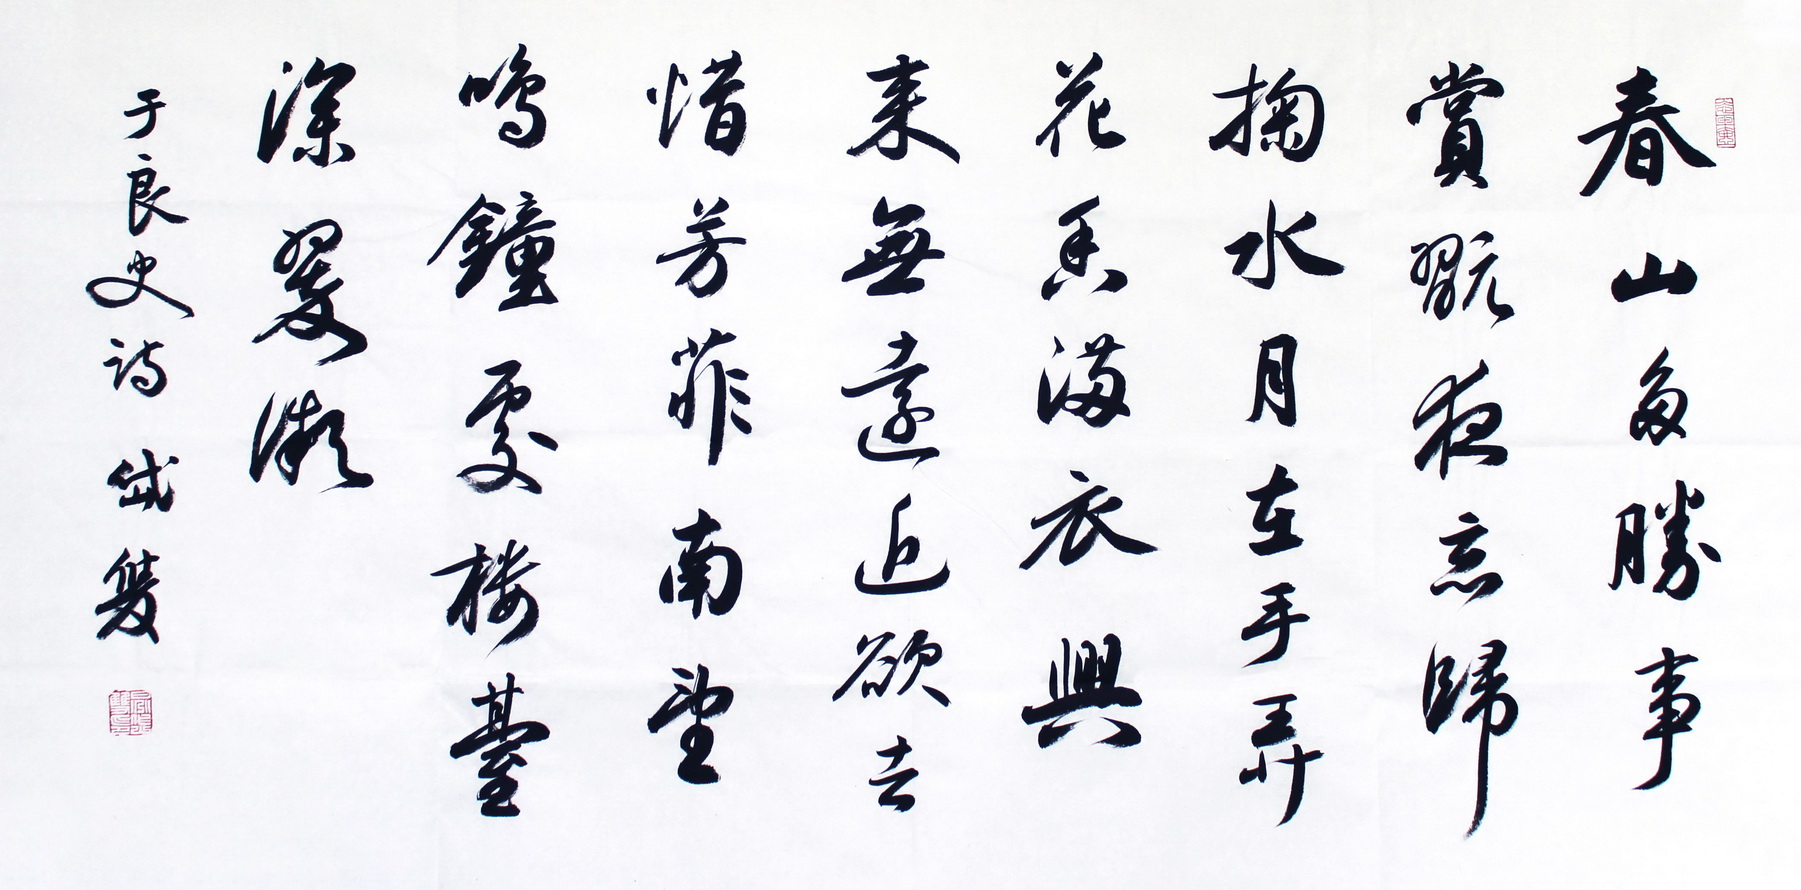 春山多勝事
賞翫夜忘歸
掬水月在手弄
花香滿衣興
来無遠近欲去
惜芳菲南望
鳴鐘處楼臺
深翠微
于良史詩 岱雙